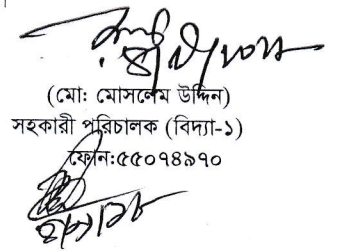 (মো: মোসলেম উদ্দিন)
সহকারী পরিচালক (বিদ্যা-১)
ফোন:৫৫০৭৪৯৭০